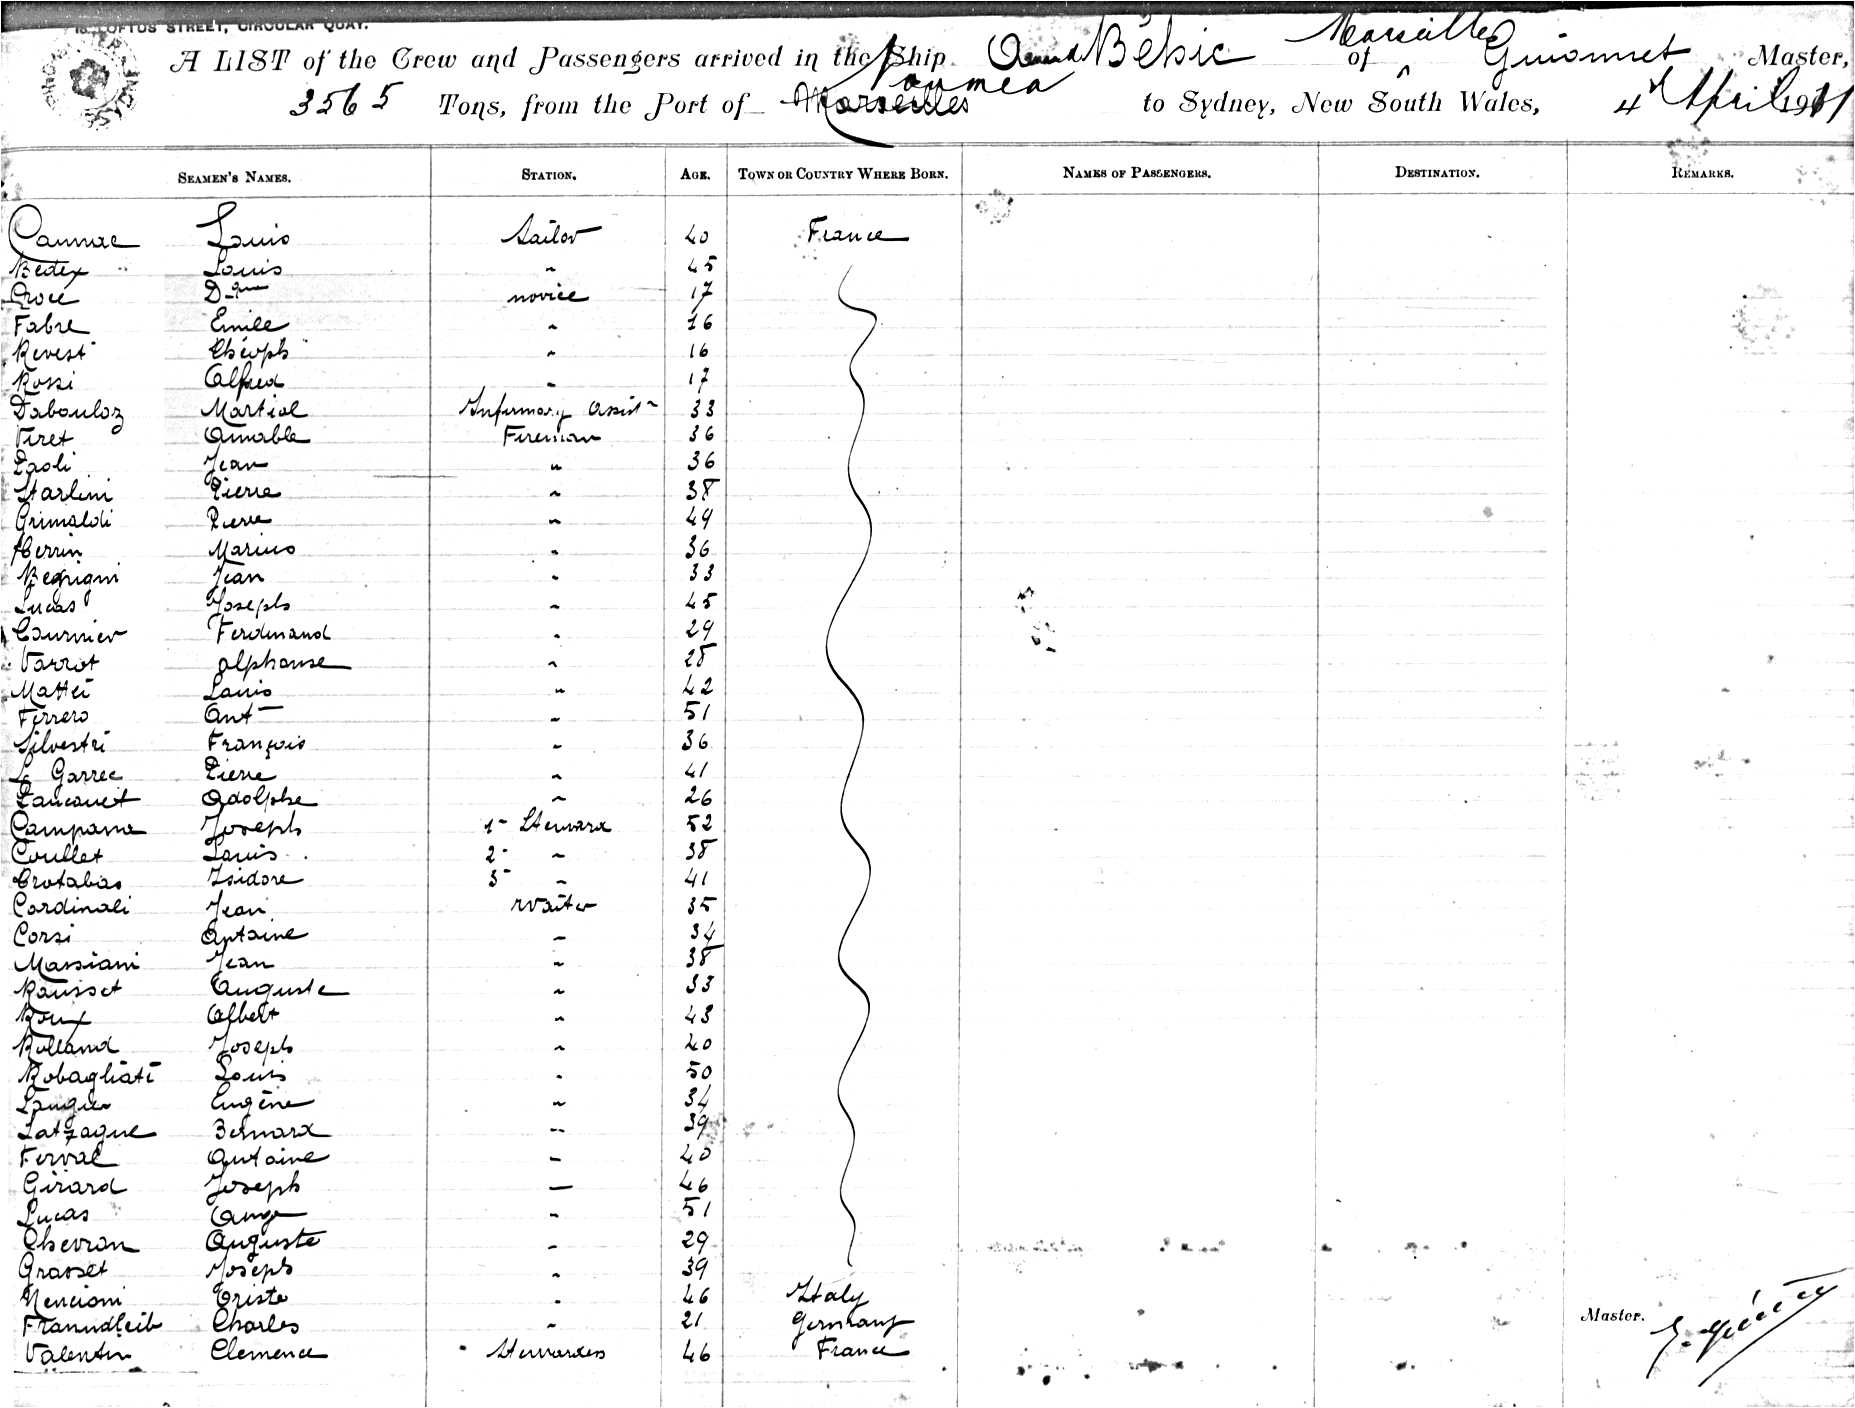 18, LOFTUS STREET, CIRCULAR QUAY.
A LIST of the Crew and Passengers arrived in the Ship Armand Béhic of Marseille Guionnet Master,
3565 Tons, from the Port of Marseilles Noumea to Sydney, New South Wales, 4th April 1911
SEAMEN'S NAMES. STATION. AGE. TOWN OR COUNTRY WHERE BORN. NAMES OF PASSENGERS. DESTINATION. REMARKS.
Cannac Louis Sailor 40 France
Bedex Louis " 45
Croce D-que novice 17
Fabre Emile " 16
Revest Théoph " 16
Rossi Alfred " 17
Dabouloz Martial Infirmary Assist 33
Viret Aimable Fireman 36
Paoli Jean " 36
Starlini Pierre " 38
Grimaldi Pierre " 49
Perrin Marius " 36
Jean " 33
Lucas Joseph " 45
Cournier Ferdinand " 29
Varrot alphonse " 28
Mattei Louis " 42
Ferrero Ant " 51
Silvestri François " 36
Le Garrec Pierre " 41
Adolphe " 26
Campana Joseph 1- Steward 52
Coullet Louis 2- " 38
Crotabas Isidore 3- " 41
Cardinali Jean Waiter 35
Corsi Antoine " 34
Massiani Jean " 38
Rousset Auguste " 33
Roux Albert " 43
Rolland Joseph " 40
Robagliati Louis " 50
Laugier Eugène " 34
Latzague Bernard " 39
Ferval Antoine " 40
Girard Joseph — 46
Lucas Ange " 51
Chevron Auguste " 29
Grasset Joseph " 39
Nencioni Oriste " 46 Italy
Charles " 21 Germany
Valentin Clemence Stewardess 46 France
Master.